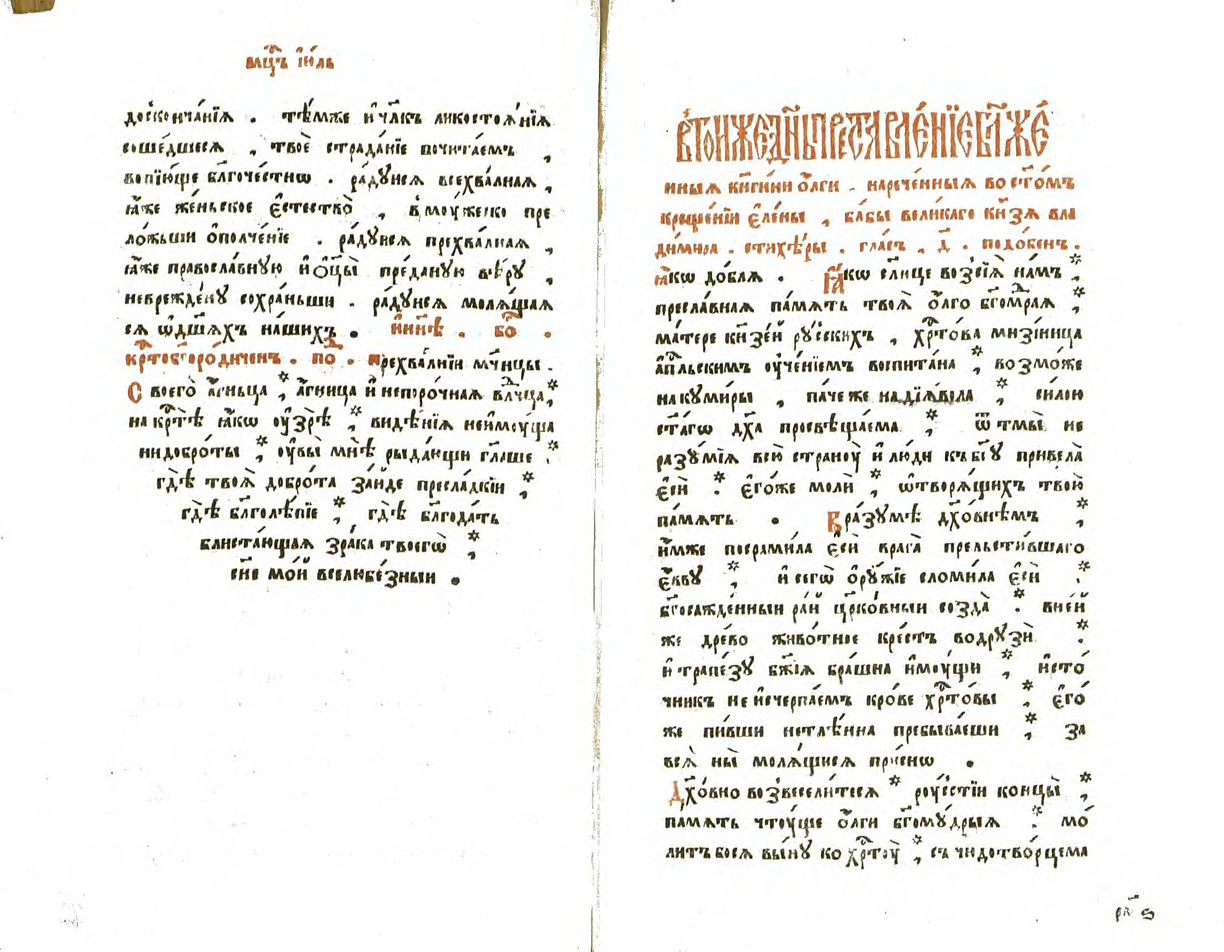 мцⷭ҇ъ і҆ю́ль
досконча́нїѧ . тѣ́мже и҆ чл҃къ ликостоѧ́нїѧ
соше́дшесѧ , твоѐ страда́нїе почита́емъ ,
вопїю́ще бл҃гоче́стнѡ . ра́дꙋисѧ всехва́лнаѧ ,
ꙗ҆́же же́ньское є҆стество̀ , в̾мꙋ́жеско пре
ло́жьши ѡ҆полче́нїе . ра́дꙋисѧ прехва́лнаѧ ,
ꙗ҆́же правосла́внꙋю и҆ ѻ҆ц҃ы̀ пре́данꙋю вѣ́рꙋ ,
невреж́денꙋ сохра́ньши . ра́дꙋисѧ молѧ́щаѧ
сѧ ѡ҆ дш҃ахъ на́шихъ . и҆ нн҃ѣ . бо҃ .
крⷭ҇тобг҃оро́диченъ . поⷣ . прехва́лнїи мч҃нцы .
Своего̀ а҆́гньца * а҆́гница и҆ непоро́чнаѧ влⷣчца *
на крⷭ҇тѣ̀ ꙗ҆́кѡ ᲂу҆зрѣ̀ * видѣ́нїѧ неи҆мꙋ́ща
ни добро́ты * ᲂу҆вы̀ мнѣ̀ рыда́ющи гл҃аше *
гдѣ̀ твоѧ̀ добро́та за́йде пресла́дкїи *
гдѣ̀ бл҃голѣ́пїе * гдѣ̀ бл҃года́ть
блиста́ющаѧ зра́ка твоегѡ̀ *
сн҃е мо́й вселюбе́зныи .
в̾то́йже дн҃ь преста́вле́нїе бл҃же́
нныѧ кнѧги́ни ѻ҆́лги . нарече́нныѧ во ст҃о́мъ
креще́нїи є҆ле́ны , ба́бы вели́каго кн҃зѧ вла
ди́мира . стихе́ры . гла́съ , д҃ . подо́бенъ .
ꙗ҆́кѡ до́блѧ . Ꙗ҆́кѡ сл҃нце возсїѧ̀ на́мъ *
пресла́внаѧ па́мѧть твоѧ̀ ѻ҆́лго бг҃омⷣраѧ *
ма́тере кн҃зе́й рꙋ́сскихъ , хрⷭ҇то́ва мизи́ница
а҆пⷭ҇льскимъ ᲂу҆че́нїемъ воспита́на * возмо́же
на кꙋми́ры , па́че же на дїѧ́вола * си́лою
ст҃а́гѡ дх҃а просвѣща́ема * ѿ тмы̀ не
разꙋ́мїѧ всю̀ странꙋ̀ и҆ лю́ди къ бг҃ꙋ привела̀
є҆сѝ * є҆го́же молѝ * ѡ҆ творѧ́щихъ твою̀
па́мѧть . Вра́зꙋмѣ дх҃о́внѣмъ *
и҆́мже посрами́ла є҆сѝ врага̀ прельсти́вшаго
є҆́ввꙋ * и҆ сегѡ̀ ѻ҆рꙋ́жїе сломи́ла є҆сѝ *
бг҃осажде́нныи ра́й цр҃ко́вныи созда̀ * в не́й
же дре́во живо́тное кре́стъ водрꙋзѝ *
и҆ трапе́зꙋ бж҃їѧ бра́шна и҆мꙋ́щи * и҆сто́
чникъ неи҆счерпа́емъ кро́ве хрⷭ҇то́вы * є҆го́
же пи́вши нетлѣ́нна пребыва́еши * за
всѧ̀ ны̀ молѧ́щисѧ при́снѡ .
Дх҃о́вно возвесели́тесѧ * рꙋ́стїи концы̀ *
па́мѧть чтꙋ́ще ѻ҆́лги бг҃омꙋ́дрыѧ * мо́
литъ босѧ вы́нꙋ ко хрⷭ҇тꙋ̀ * съ чюдотво́рцема
рⷩ҇ ѕ